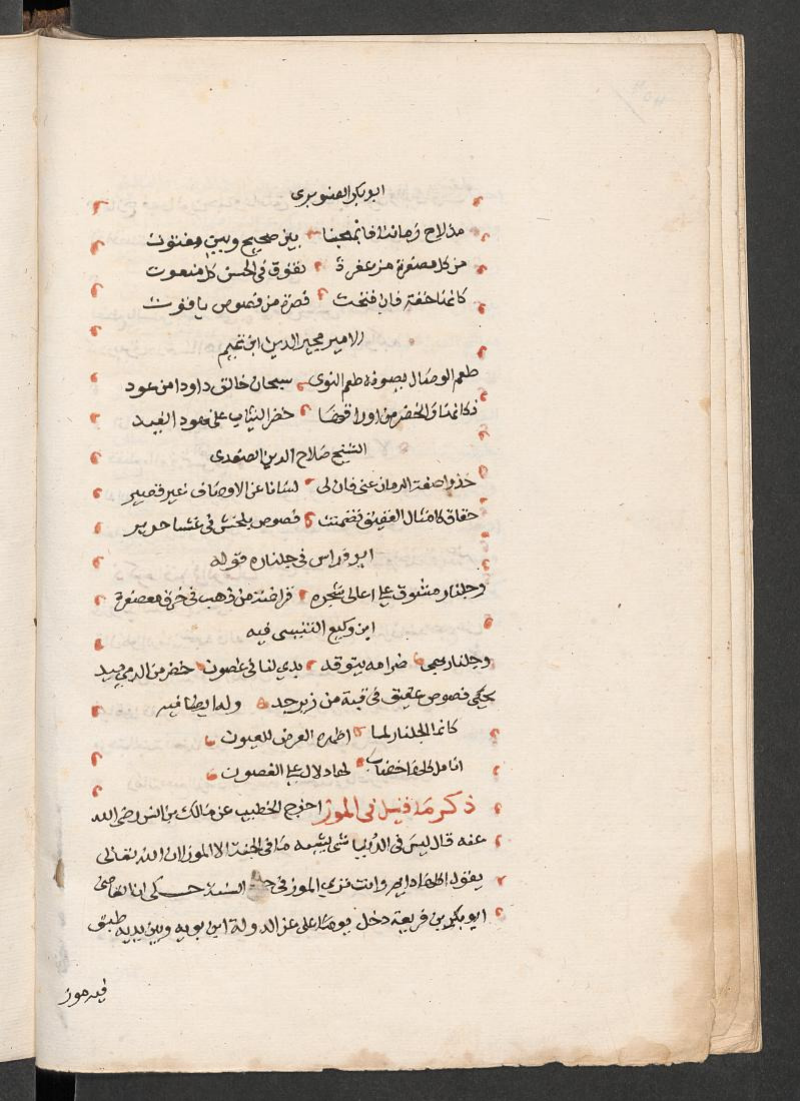 ابو بكر الصنوبرى
مذ لاح رماننا فابهجنا بين صحيح وبين مفتوت
من كل مصفرة مزعفرة تفوق فى الحسن كل منعوت
كانها حقة فان فتحت فصرة من فصوص ياقوت
الامير مجير الدين ابن تميم
طعم الوصال يصونه طعم النوى سبحان خالق داودا من عود
فكانها والخضر من اوراقها خضر الثياب على نهود الغيد
الشيخ صلاح الدين الصفدى
خذوا صفة الرمان عنى فان لى لسانا عن الاوصاف غير قصير
حقاق كامثال العقيق تضمنت فصوص بلخش فى غشا حرير
ابو فراس فى جلناره قوله
وجلنار مشوق على اعالى شجره قراضة من ذهب فى خرق معصفرة
ابن وكيع التنيسى فيه
وجلنار بهى ضرامه يتوقد بدى لنا فى غصون خضر من الرى ميد
يحكى فصوص عقيق فى قبة من زبرجد وله ايضا فيه
كانما الجلنار لما اظهره العرض للعيون
انامل كلها خضاب لها دلال على الغصون
ذكر ما قيل فى الموز اخرج الخطيب عن مالك بن انس رضى الله
عنه قال ليس فى الدنيا شى يشبه ما فى الجنة الا الموز لان الله تعالى
يقول اكلها دايم وانت تزى الموز فى السنة حكى ان القاضى
ابو بكر بن قريعة دخل يوما على عز الدولة ابن بويه وبين يديه طبق
فيه موز